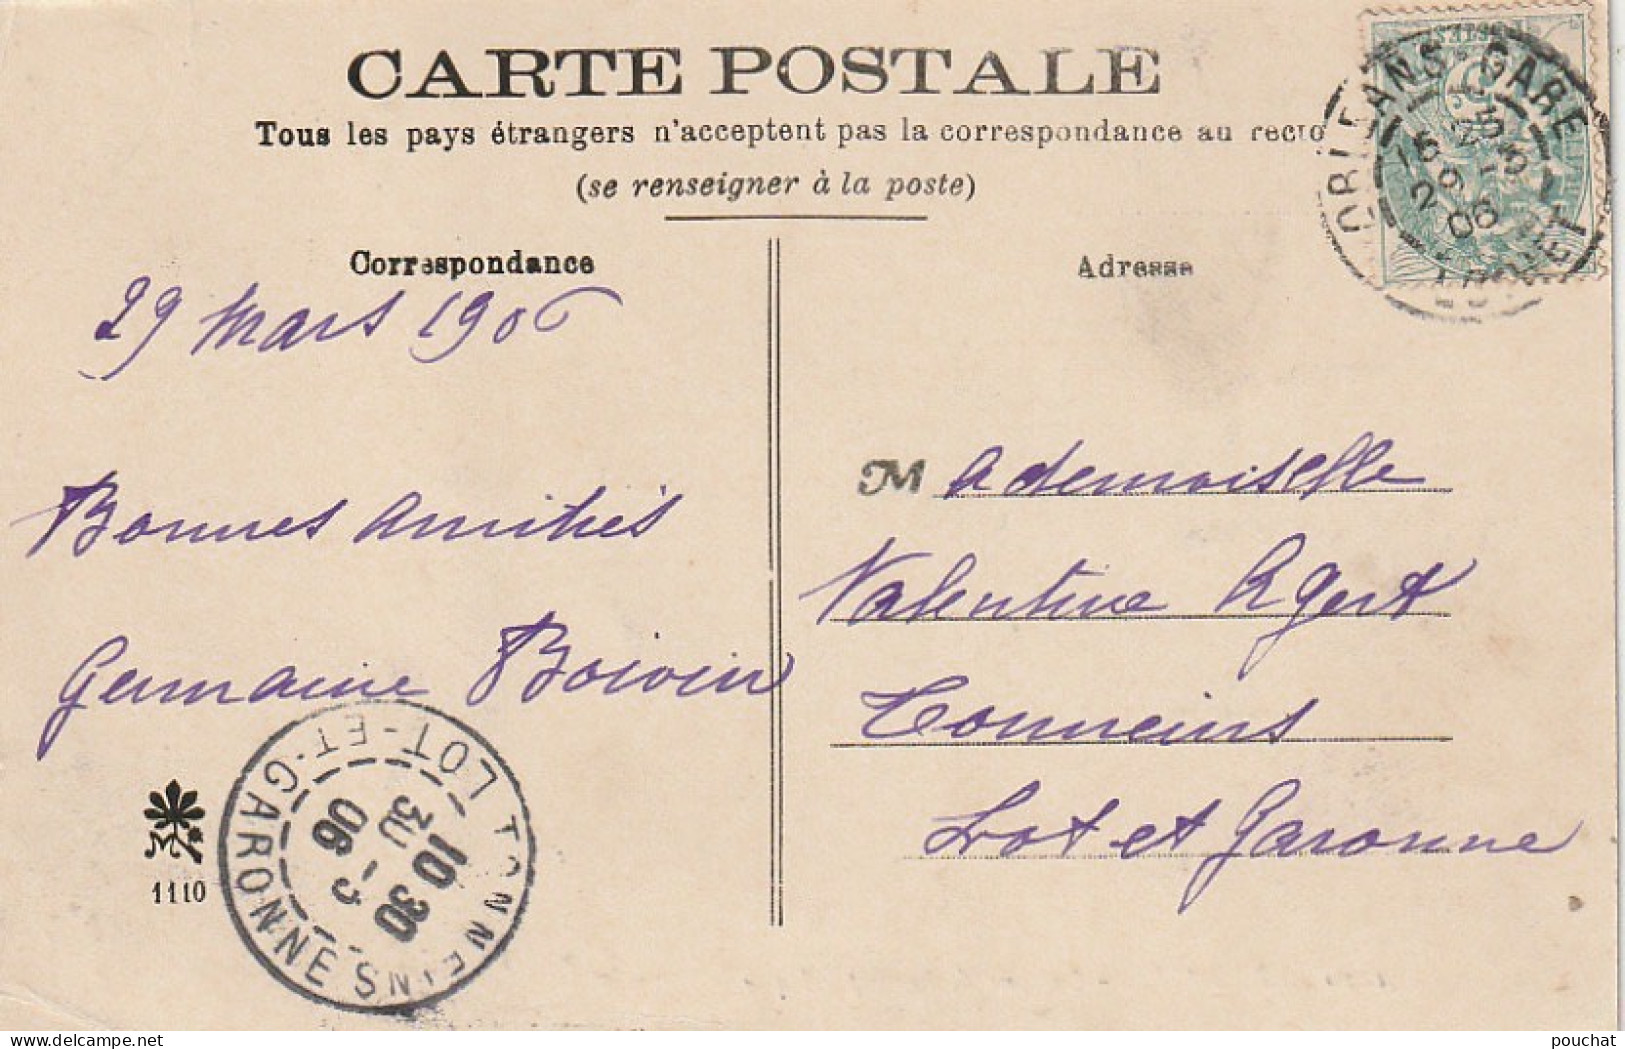 CARTE POSTALE
Tous les pays étrangers n'acceptent pas la correspondance au recto
(se renseigner à la poste)
Correspondance
Adresse
ORLEANS-GARE
LOIRET
15 25
29 -3
06
29 Mars 1906
Bonnes amitiés
Germaine Boivin
Mademoiselle
Valentine
Tonneins
Lot et Garonne
TONNEINS
LOT-ET-GARONNE
10 30
30 -3
06
1110
delcampe.net
pouchat